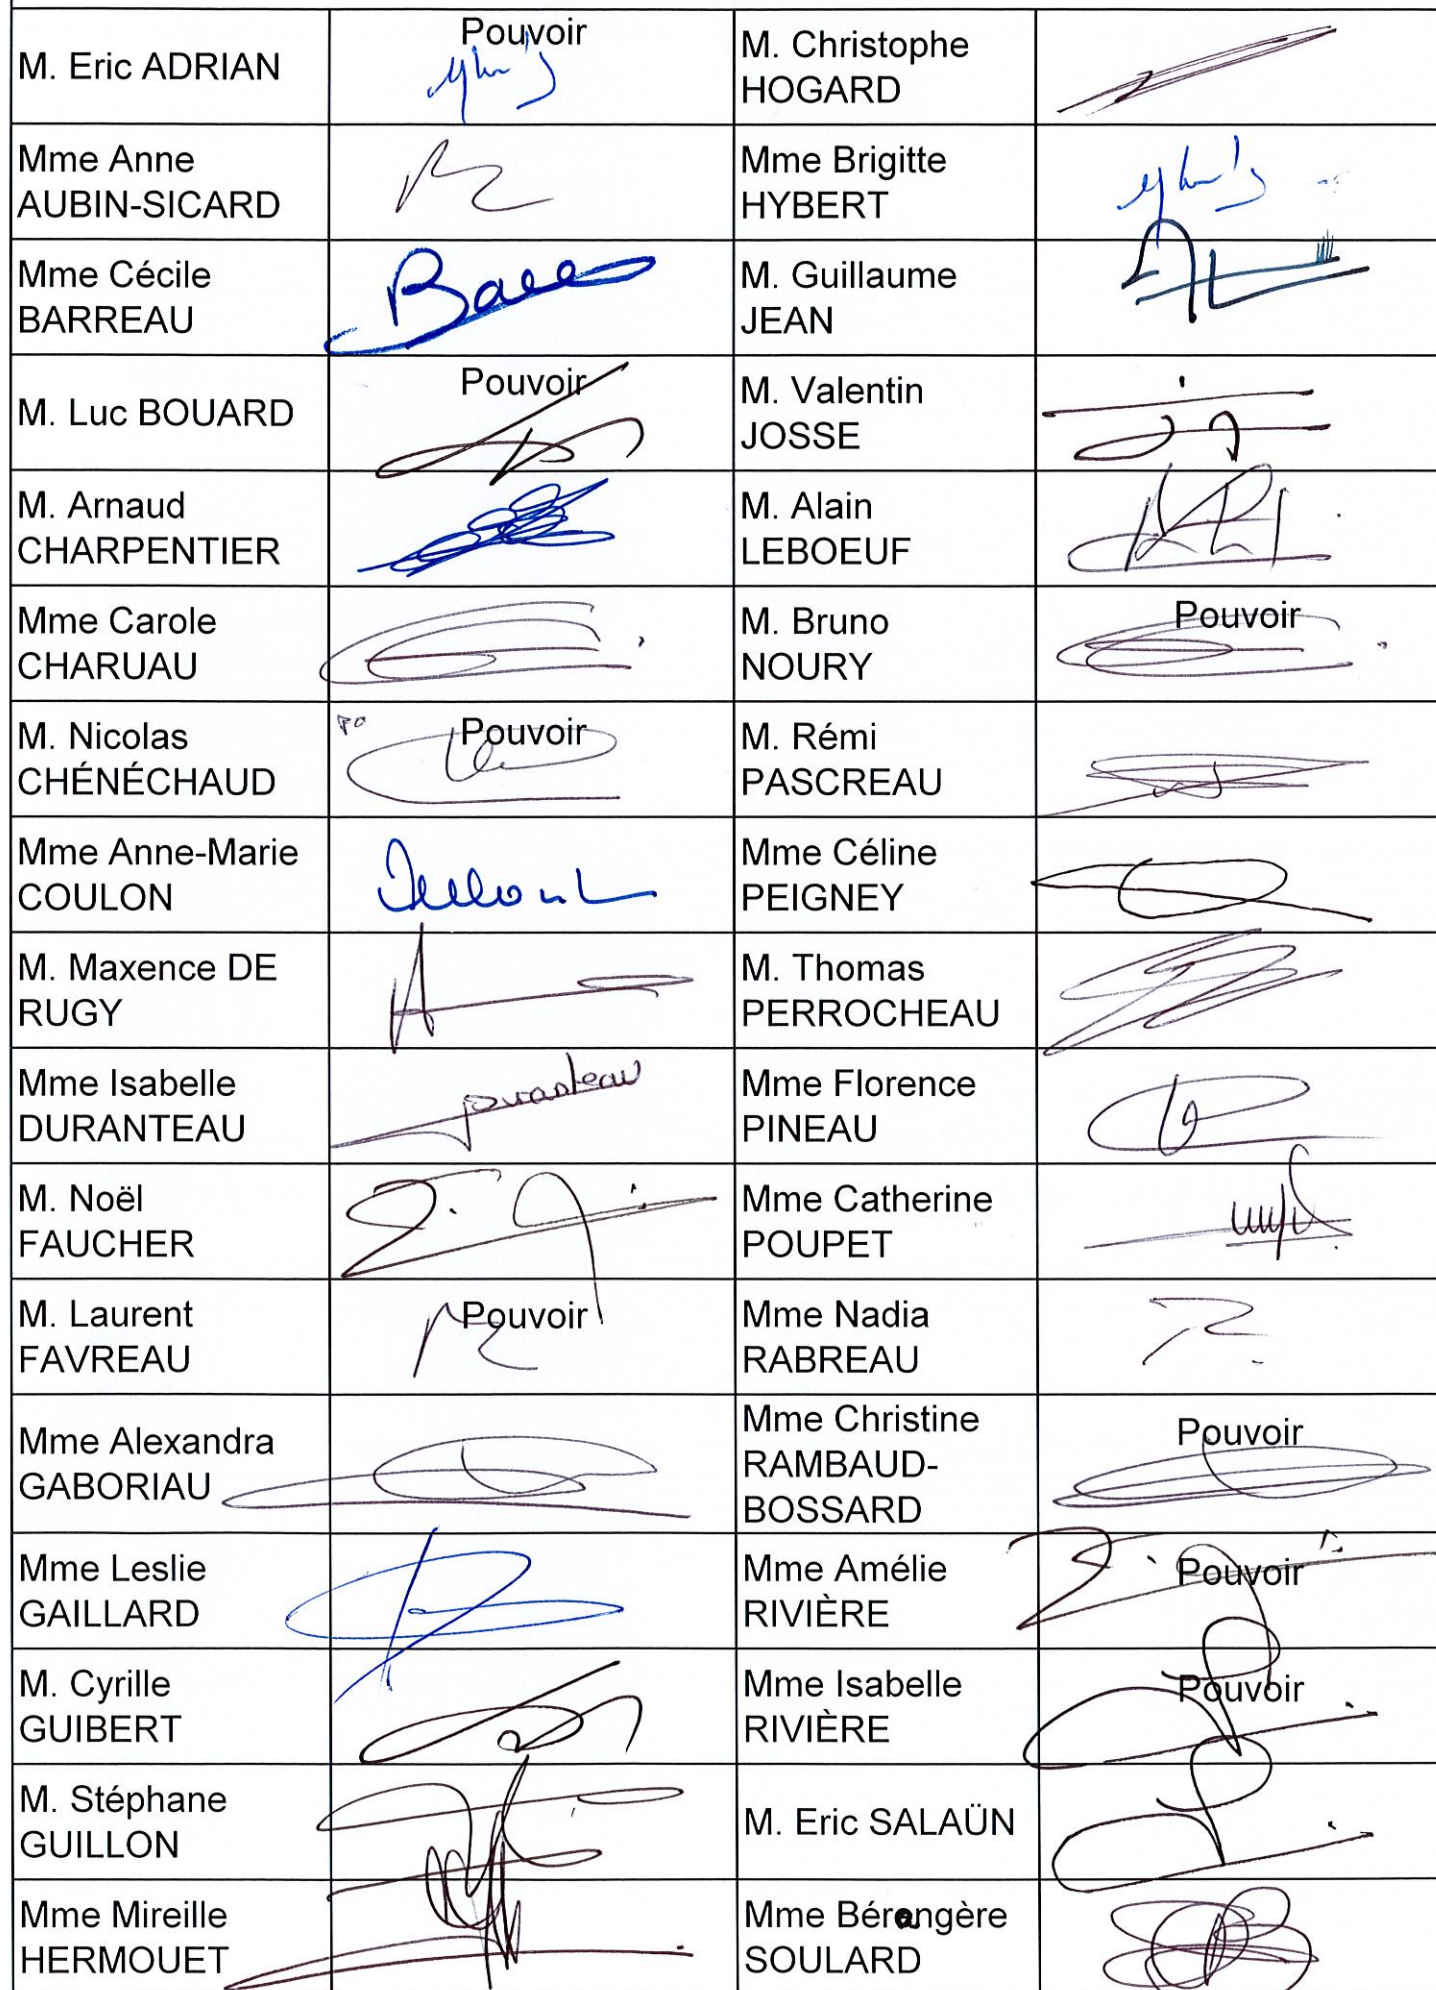 M. Eric ADRIAN
Pouvoir
M. Christophe
HOGARD
Mme Anne
AUBIN-SICARD
Mme Brigitte
HYBERT
Mme Cécile
BARREAU
M. Guillaume
JEAN
M. Luc BOUARD
Pouvoir
M. Valentin
JOSSE
M. Arnaud
CHARPENTIER
M. Alain
LEBOEUF
Mme Carole
CHARUAU
M. Bruno
NOURY
Pouvoir
M. Nicolas
CHÉNÉCHAUD
PO
Pouvoir
M. Rémi
PASCREAU
Mme Anne-Marie
COULON
Mme Céline
PEIGNEY
M. Maxence DE
RUGY
M. Thomas
PERROCHEAU
Mme Isabelle
DURANTEAU
Mme Florence
PINEAU
M. Noël
FAUCHER
Mme Catherine
POUPET
M. Laurent
FAVREAU
Pouvoir
Mme Nadia
RABREAU
Mme Alexandra
GABORIAU
Mme Christine
RAMBAUD-
BOSSARD
Pouvoir
Mme Leslie
GAILLARD
Mme Amélie
RIVIÈRE
Pouvoir
M. Cyrille
GUIBERT
Mme Isabelle
RIVIÈRE
Pouvoir
M. Stéphane
GUILLON
M. Eric SALAÜN
Mme Mireille
HERMOUET
Mme Bérangère
SOULARD